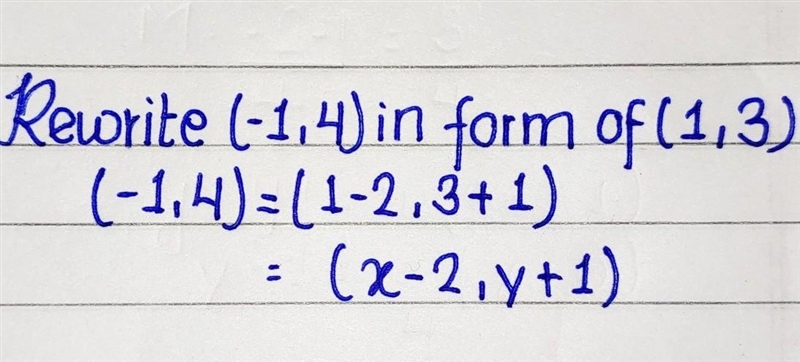 Rewrite (-1,4) in form of (1,3)
(-1,4) = (1-2,3+1)
= (x-2,y+1)